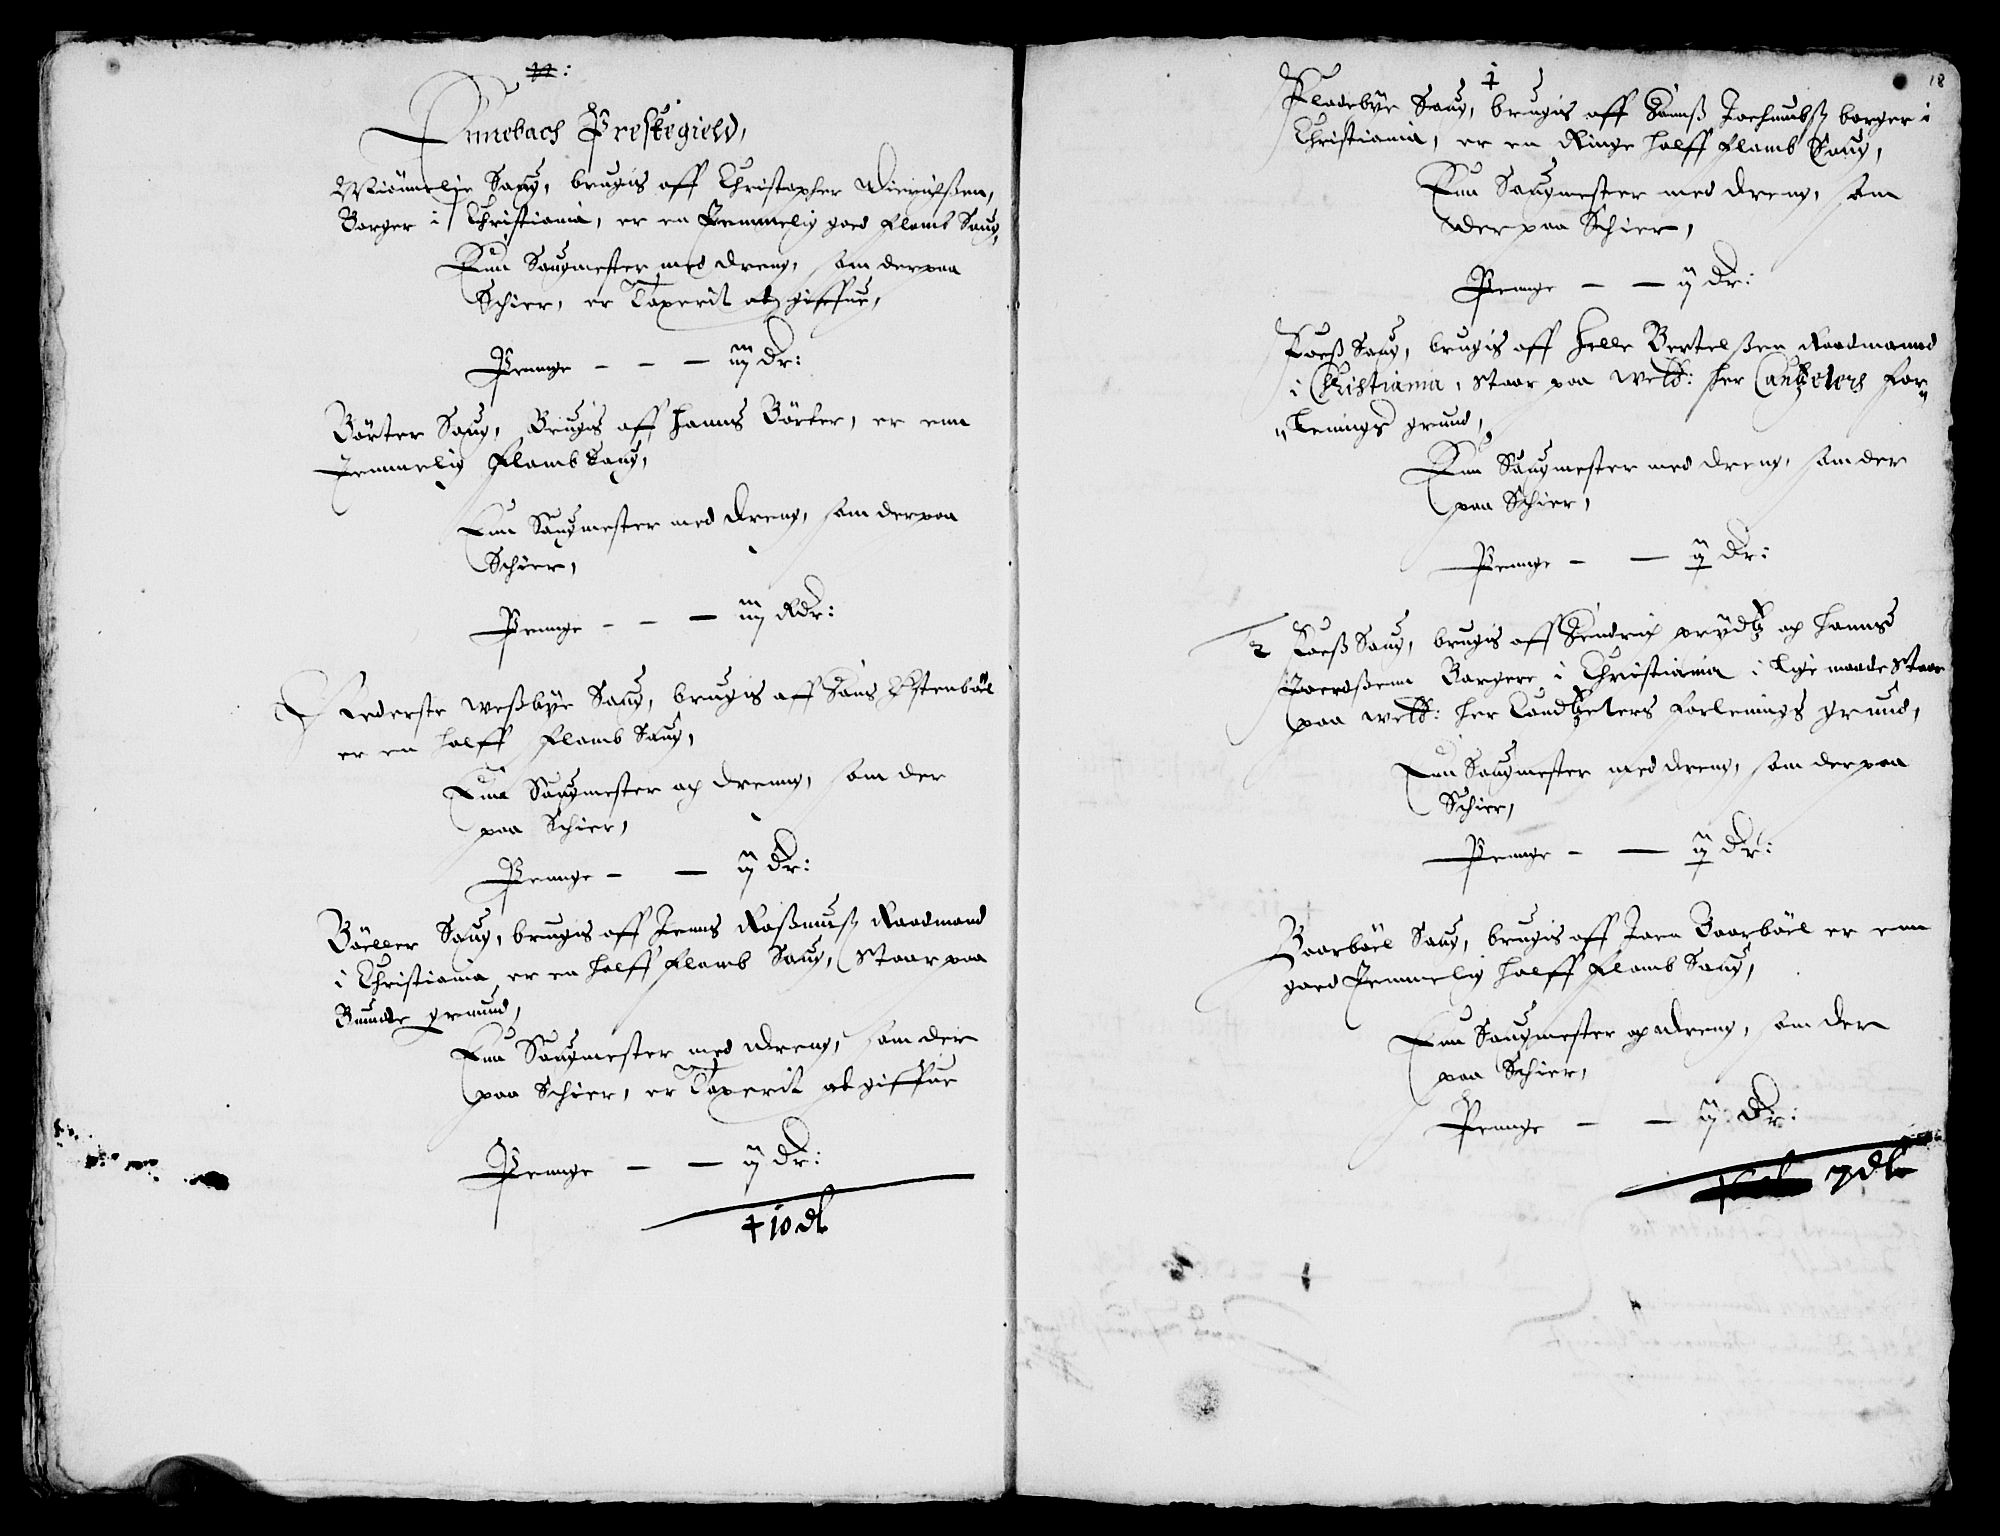 Ennebach Prestegield,
Miönnelie Saug, brugis aff Christopher
Borger i Christiania, er en Temmelig goed Flomb Saug,
Enn Saugmester med dreng, som derpaa
Schier, er Taxerit at giffue,
Penge - - - iiij Dr:
Börter Saug, Brugis aff Hanns Börter, er enn
Temmelig Flomb Saug,
Enn Saugmester med dreng, som derpaa
Schier,
Penge - - - iiij Rdr:
Nederste Weßbye Saug, brugis aff Hans Østenböel
er en halff Flomb Saug,
Enn Saugmester og dreng, som der
paa Schier,
Penge - - ij Dr:
Böeller Saug, brugis aff Jenns Raßmuß Raadmand
i Christiania, er en halff Flomb Saug, staar paa
Bunde grund,
Enn Saugmester med dreng, som der
paa Schier, er Taxerit at giffue
Penge - - ij Dr:
10 dl
18
Fladebye Saug, brugis aff Hanß borger i
Christiania, er en Ringe halff Flomb Saug,
Enn Saugmester med dreng, som
der paa Schier,
Penge - - ij Dr:
Foeß Saug, brugis aff Helle Bertelßen Raadmand
i Christiania, staar paa Welb: Her Cantzelers For-
lenings grund,
Enn Saugmester med dreng, som der
paa Schier,
Penge - - ij Dr:
2 Foeß Saug, brugis aff Hendrich og Hanns
Borgere i Christiania i lige maade staar
paa Welb: Her Cantzelers Forlenings grund,
Enn Saugmester med dreng, som derpaa
Schier,
Penge - - ij Dr:
Baarböel Saug, brugis aff Joen Baarböel er enn
goed Temmelig halff Flomb Saug,
Enn Saugmester og dreng, som der
paa Schier,
Penge - - ij Dr:
7 dl